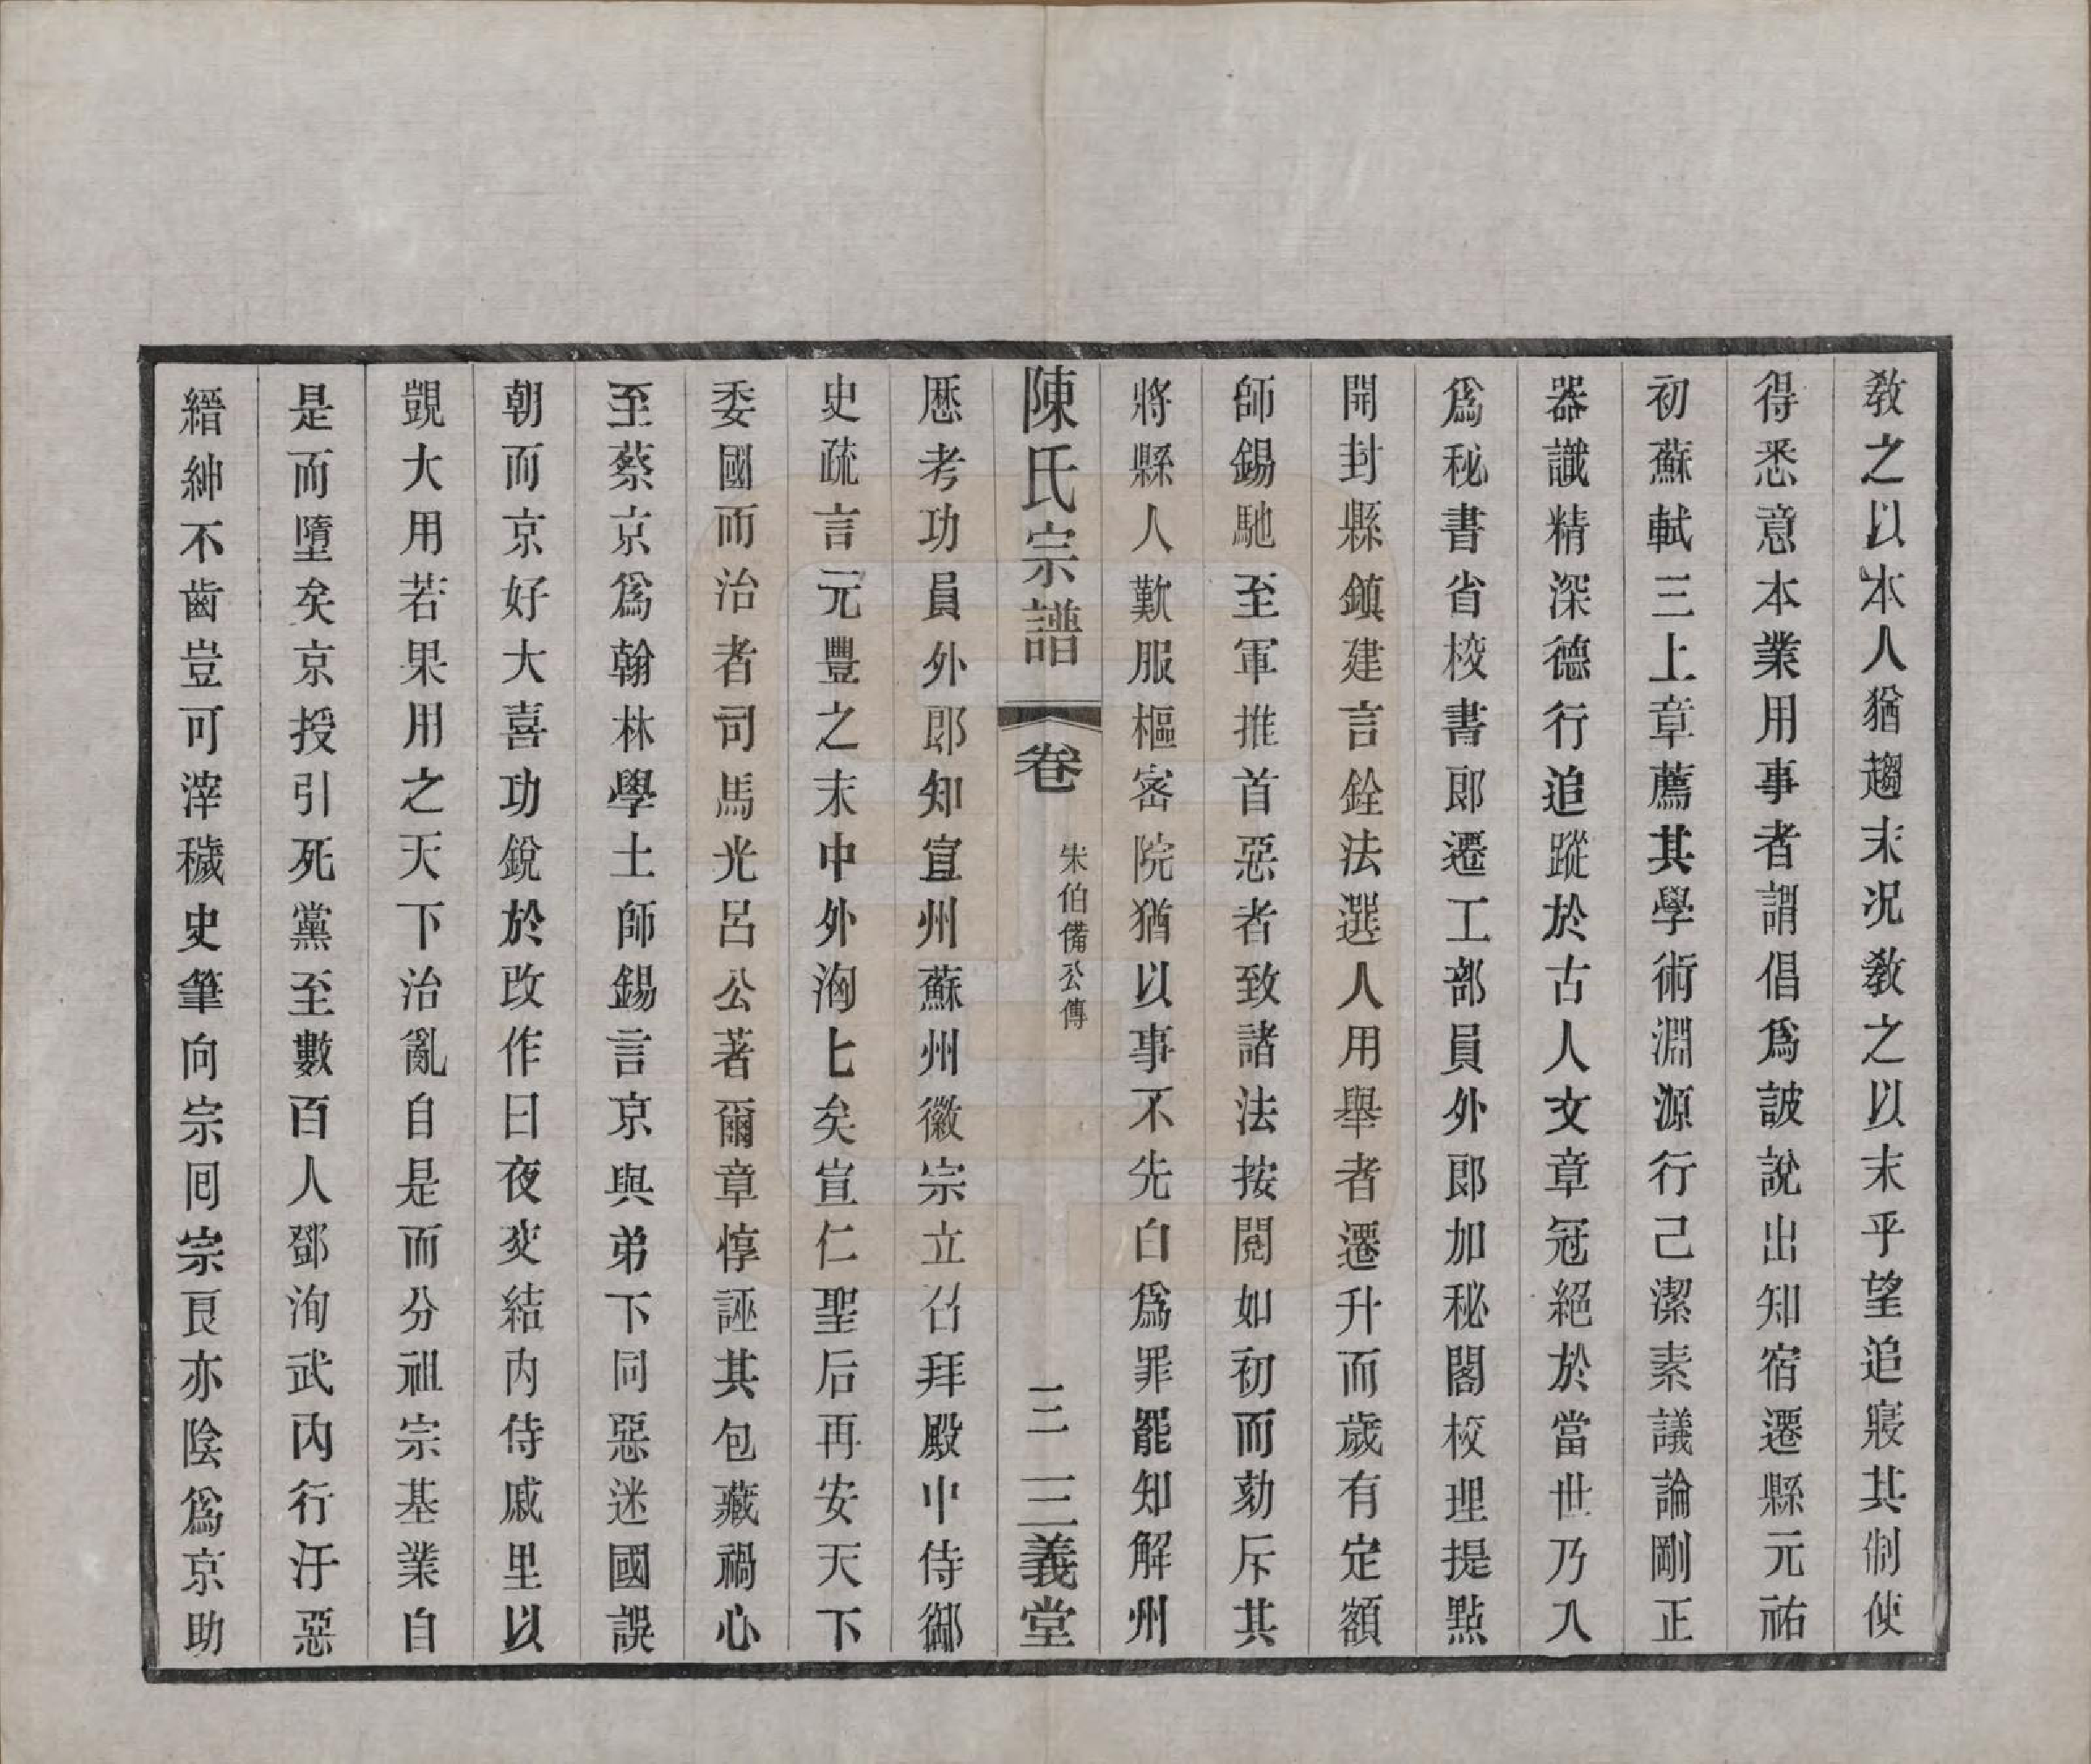 教之以本人猶趨末况教之以末乎望追寢其制使
得悉意本業用事者謂倡爲詖說出知宿遷縣元祐
初蘇軾三上章薦其學術淵源行己潔素議論剛正
器識精深德行追蹤於古人文章冠絕於當世乃入
爲秘書省校書郎遷工部員外郎加秘閣校理提點
開封縣鎮建言銓法選人用舉者遷升而歲有定額
師錫馳至軍推首惡者致諸法按閱如初而劾斥其
將縣人歎服樞密院猶以事不先白爲罪罷知解州
陳氏宗譜 卷 宋伯備公傳 三二 三義堂
歷考功員外郎知宣州蘇州徽宗立召拜殿中侍御
史疏言元豐之末中外洶匕矣宣仁聖后再安天下
委國而治者司馬光呂公著爾章惇誣其包藏禍心
至蔡京爲翰林學士師錫言京與弟下同惡迷國誤
朝而京好大喜功銳於改作日夜交結内侍戚里以
覬大用若果用之天下治亂自是而分祖宗基業自
是而墮矣京授引死黨至數百人鄧洵武內行汙惡
縉紳不齒豈可滓穢史筆向宗囘宗良亦陰爲京助